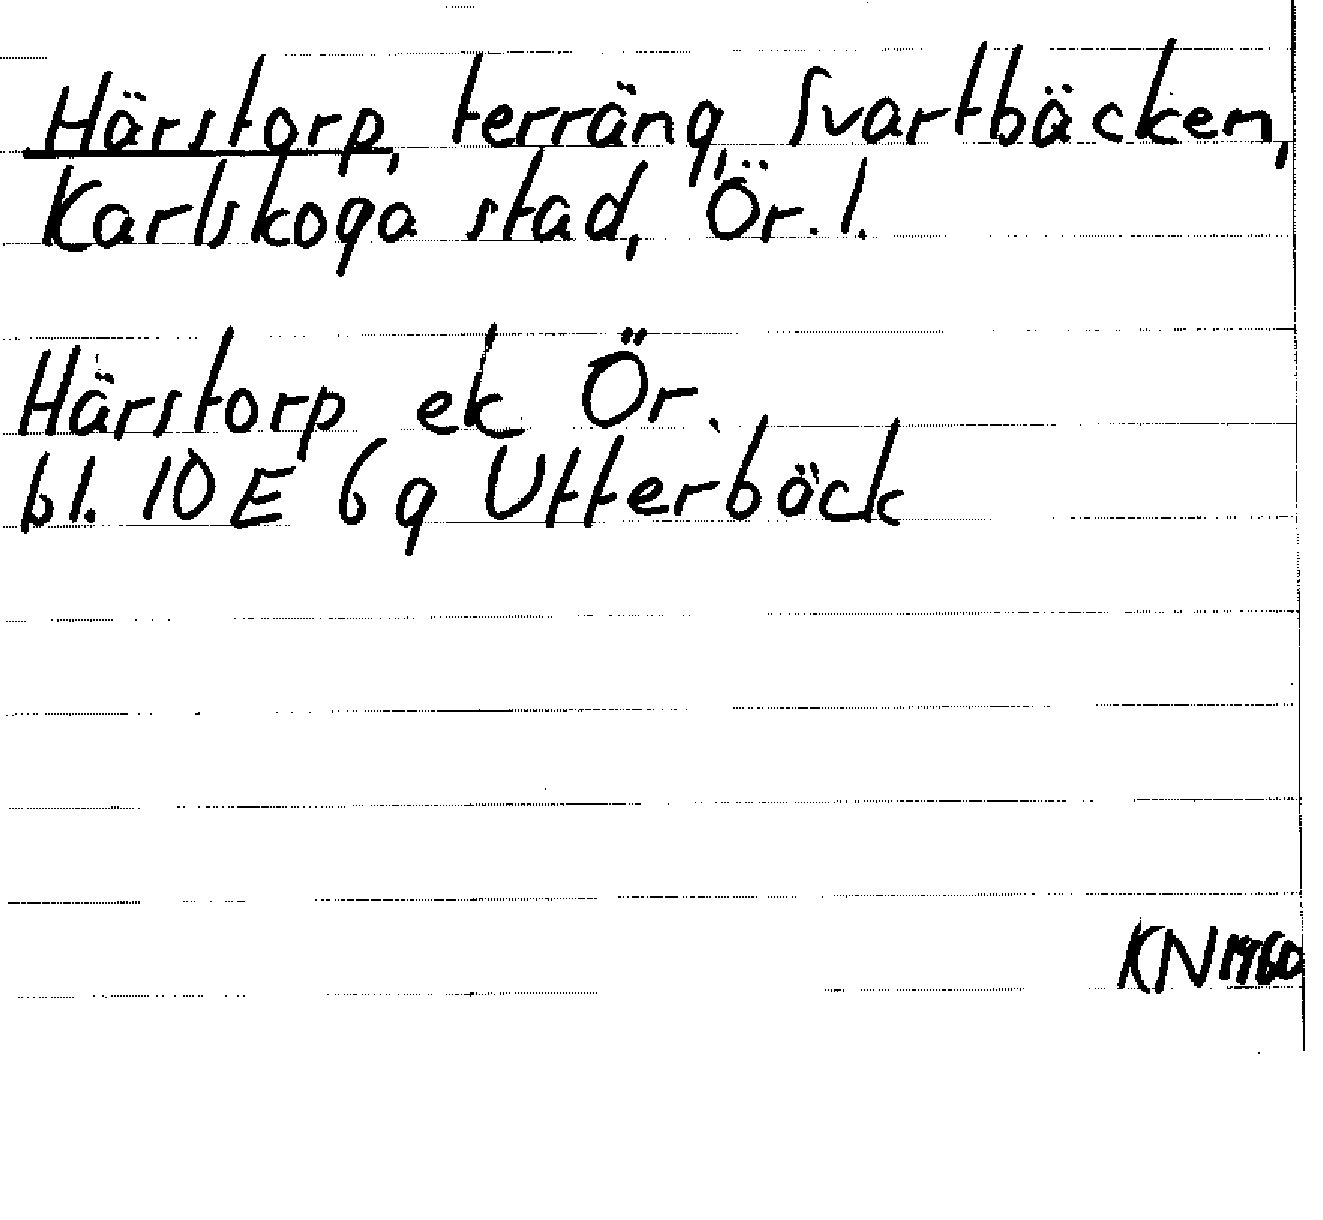 Härstorp, terräng, Svartbäcken,
Karlskoga stad, Ör. l.
Härstorp ek Ör.
bl. 10 E 6 g Utterbäck
KN 1960